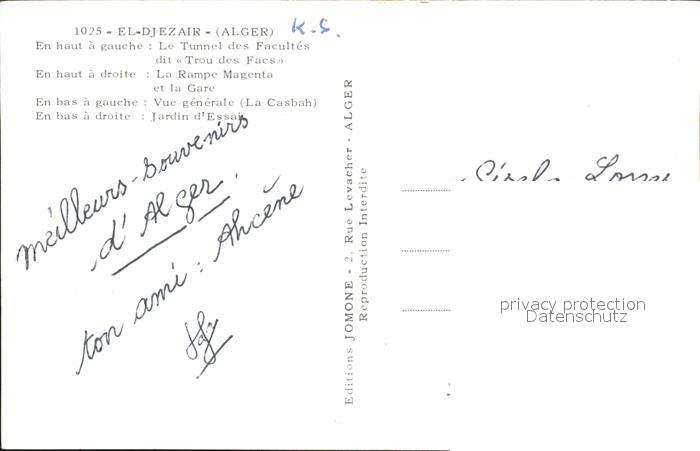 1025 - EL-DJEZAIR - (ALGER)
K.S.
En haut à gauche : Le Tunnel des Facultés
dit « Trou des Facs »
En haut à droite : La Rampe Magenta
et la Gare
En bas à gauche : Vue générale (La Casbah)
En bas à droite : Jardin d'Essai
Meilleurs-Souvenirs
d'Alger.
ton ami : Ahcène
Editions JOMONE - 2, Rue Levacher - ALGER
Reproduction Interdite
privacy protection
Datenschutz